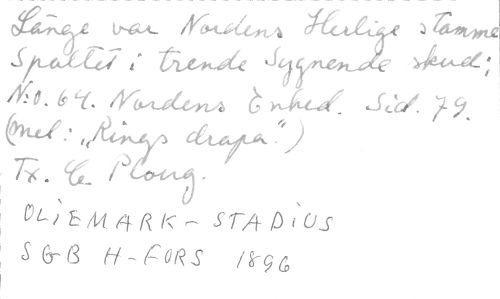 Länge var Nordens Herlige stamme
Spaltet i trende Sygnende skud;
N:o. 64. Nordens Enhed. Sid. 79.
(mel: „Rings drapa".)
Tx. C. Ploug.
OLIEMARK - STADIUS
SGB H-FORS 1896